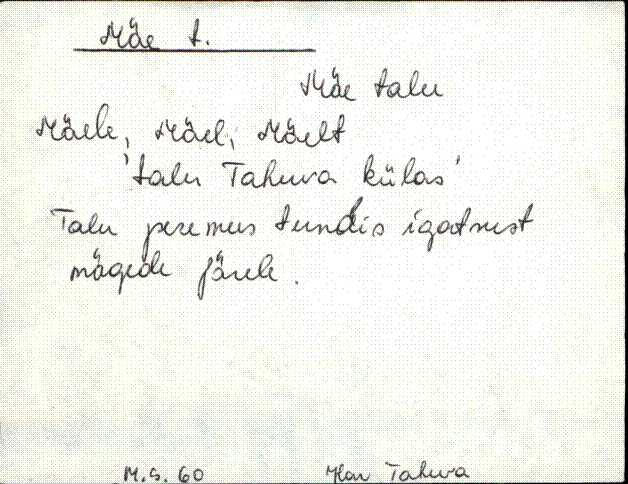 Mäe t.
Mäe talu
Mäele, Mäel, Mäelt
'talu Tahuva külas'
Talu peremees tundis igatsust
mägede järele.
M.S. 60 Tahuva